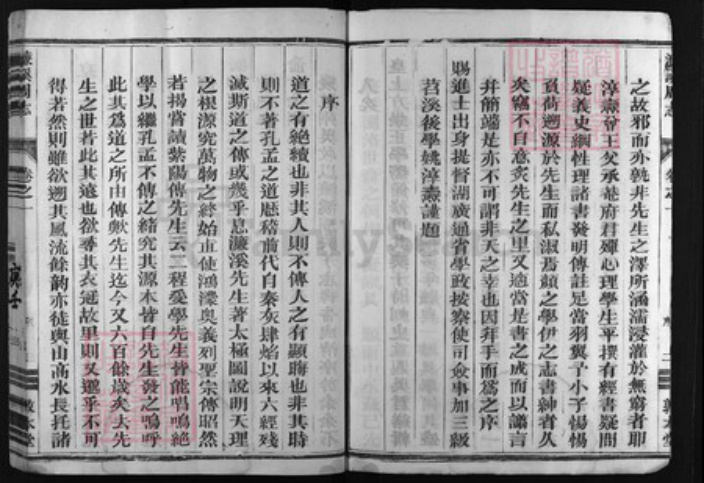 之故邪而亦孰非先生之澤所涵濡浸灌於無窮者耶
淳燾曾王父承菴府君殫心理學生平撰有經書疑問
疑義史綱性理諸書發明傳註足當羽翼予小子惕惕
負荷遡源於先生而私淑焉顏之學伊之志書紳者久
矣竊不自意炙先生之里又適當是書之成而以譾言
弁簡端是亦不可謂非天之幸也因拜手而為之序
賜進士出身提督湖廣通省學政按察使司僉事加三級
苕溪後學姚淳燾謹題
序
道之有絕續也非其人則不傳人之有顯晦也非其時
則不著孔孟之道歷稽前代自秦灰肆焰以來六經殘
滅斯道之傳或幾乎息濂溪先生著太極圖說明天理
之根源究萬物之終始直使鴻濛奧義列聖宗傳昭然
若揭嘗讀紫陽傳先生云二程受學先生皆能唱鳴絕
學以繼孔孟不傳之緒究其源本皆自先生發之嗚呼
此其為道之所由傳歟先生迄今又六百餘歲矣去先
生之世若此其遠也欲尋其衣冠故里則又邈乎不可
得若然則雖欲遡其風流餘韵亦徒與山高水長托諸
卷之一
敦本堂